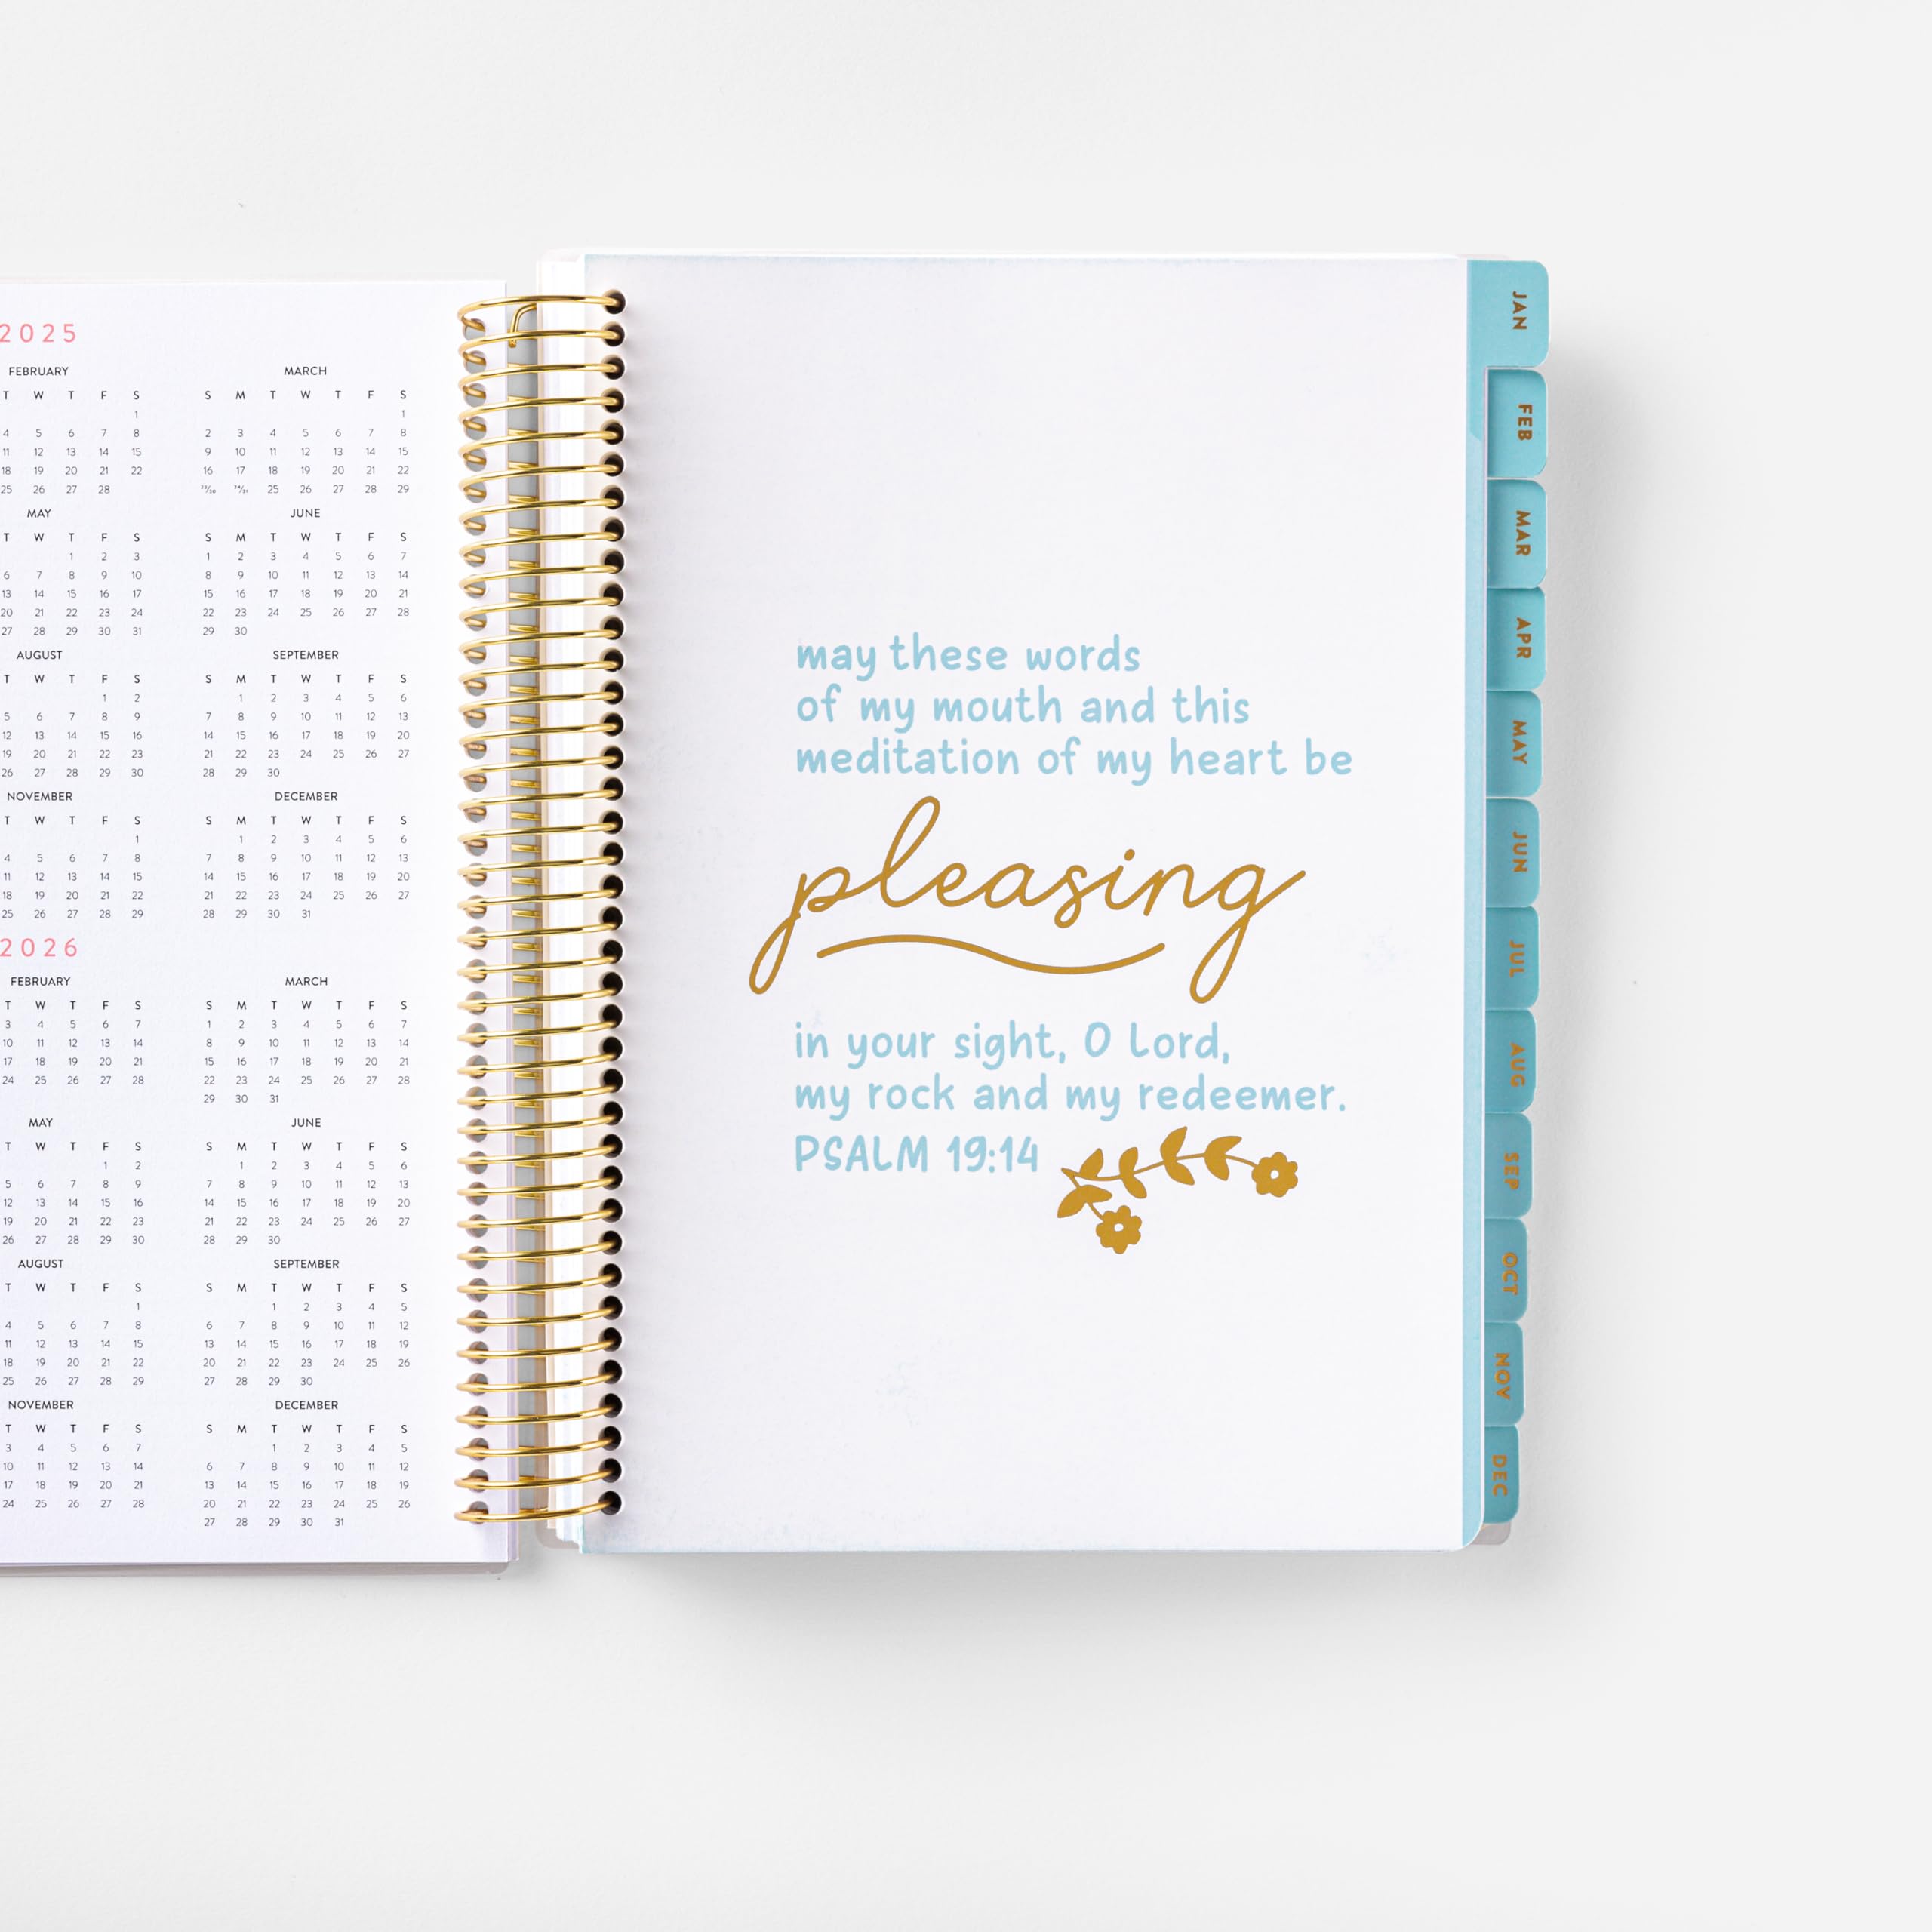 2025
FEBRUARY MARCH
T W T F S S M T W T F S
1 1
4 5 6 7 8 2 3 4 5 6 7 8
11 12 13 14 15 9 10 11 12 13 14 15
18 19 20 21 22 16 17 18 19 20 21 22
25 26 27 28 23/30 24/31 25 26 27 28 29
MAY JUNE
T W T F S S M T W T F S
1 2 3 1 2 3 4 5 6 7
6 7 8 9 10 8 9 10 11 12 13 14
13 14 15 16 17 15 16 17 18 19 20 21
20 21 22 23 24 22 23 24 25 26 27 28
27 28 29 30 31 29 30
AUGUST SEPTEMBER
T W T F S S M T W T F S
1 2 1 2 3 4 5 6
5 6 7 8 9 7 8 9 10 11 12 13
12 13 14 15 16 14 15 16 17 18 19 20
19 20 21 22 23 21 22 23 24 25 26 27
26 27 28 29 30 28 29 30
NOVEMBER DECEMBER
T W T F S S M T W T F S
1 1 2 3 4 5 6
4 5 6 7 8 7 8 9 10 11 12 13
11 12 13 14 15 14 15 16 17 18 19 20
18 19 20 21 22 21 22 23 24 25 26 27
25 26 27 28 29 28 29 30 31
2026
FEBRUARY MARCH
T W T F S S M T W T F S
3 4 5 6 7 1 2 3 4 5 6 7
10 11 12 13 14 8 9 10 11 12 13 14
17 18 19 20 21 15 16 17 18 19 20 21
24 25 26 27 28 22 23 24 25 26 27 28
29 30 31
MAY JUNE
T W T F S S M T W T F S
1 2 1 2 3 4 5 6
5 6 7 8 9 7 8 9 10 11 12 13
12 13 14 15 16 14 15 16 17 18 19 20
19 20 21 22 23 21 22 23 24 25 26 27
26 27 28 29 30 28 29 30
AUGUST SEPTEMBER
T W T F S S M T W T F S
1 1 2 3 4 5
4 5 6 7 8 6 7 8 9 10 11 12
11 12 13 14 15 13 14 15 16 17 18 19
18 19 20 21 22 20 21 22 23 24 25 26
25 26 27 28 29 27 28 29 30
NOVEMBER DECEMBER
T W T F S S M T W T F S
3 4 5 6 7 1 2 3 4 5
10 11 12 13 14 6 7 8 9 10 11 12
17 18 19 20 21 13 14 15 16 17 18 19
24 25 26 27 28 20 21 22 23 24 25 26
27 28 29 30 31
may these words
of my mouth and this
meditation of my heart be
pleasing
in your sight, O Lord,
my rock and my redeemer.
PSALM 19:14
JAN
FEB
MAR
APR
MAY
JUN
JUL
AUG
SEP
OCT
NOV
DEC